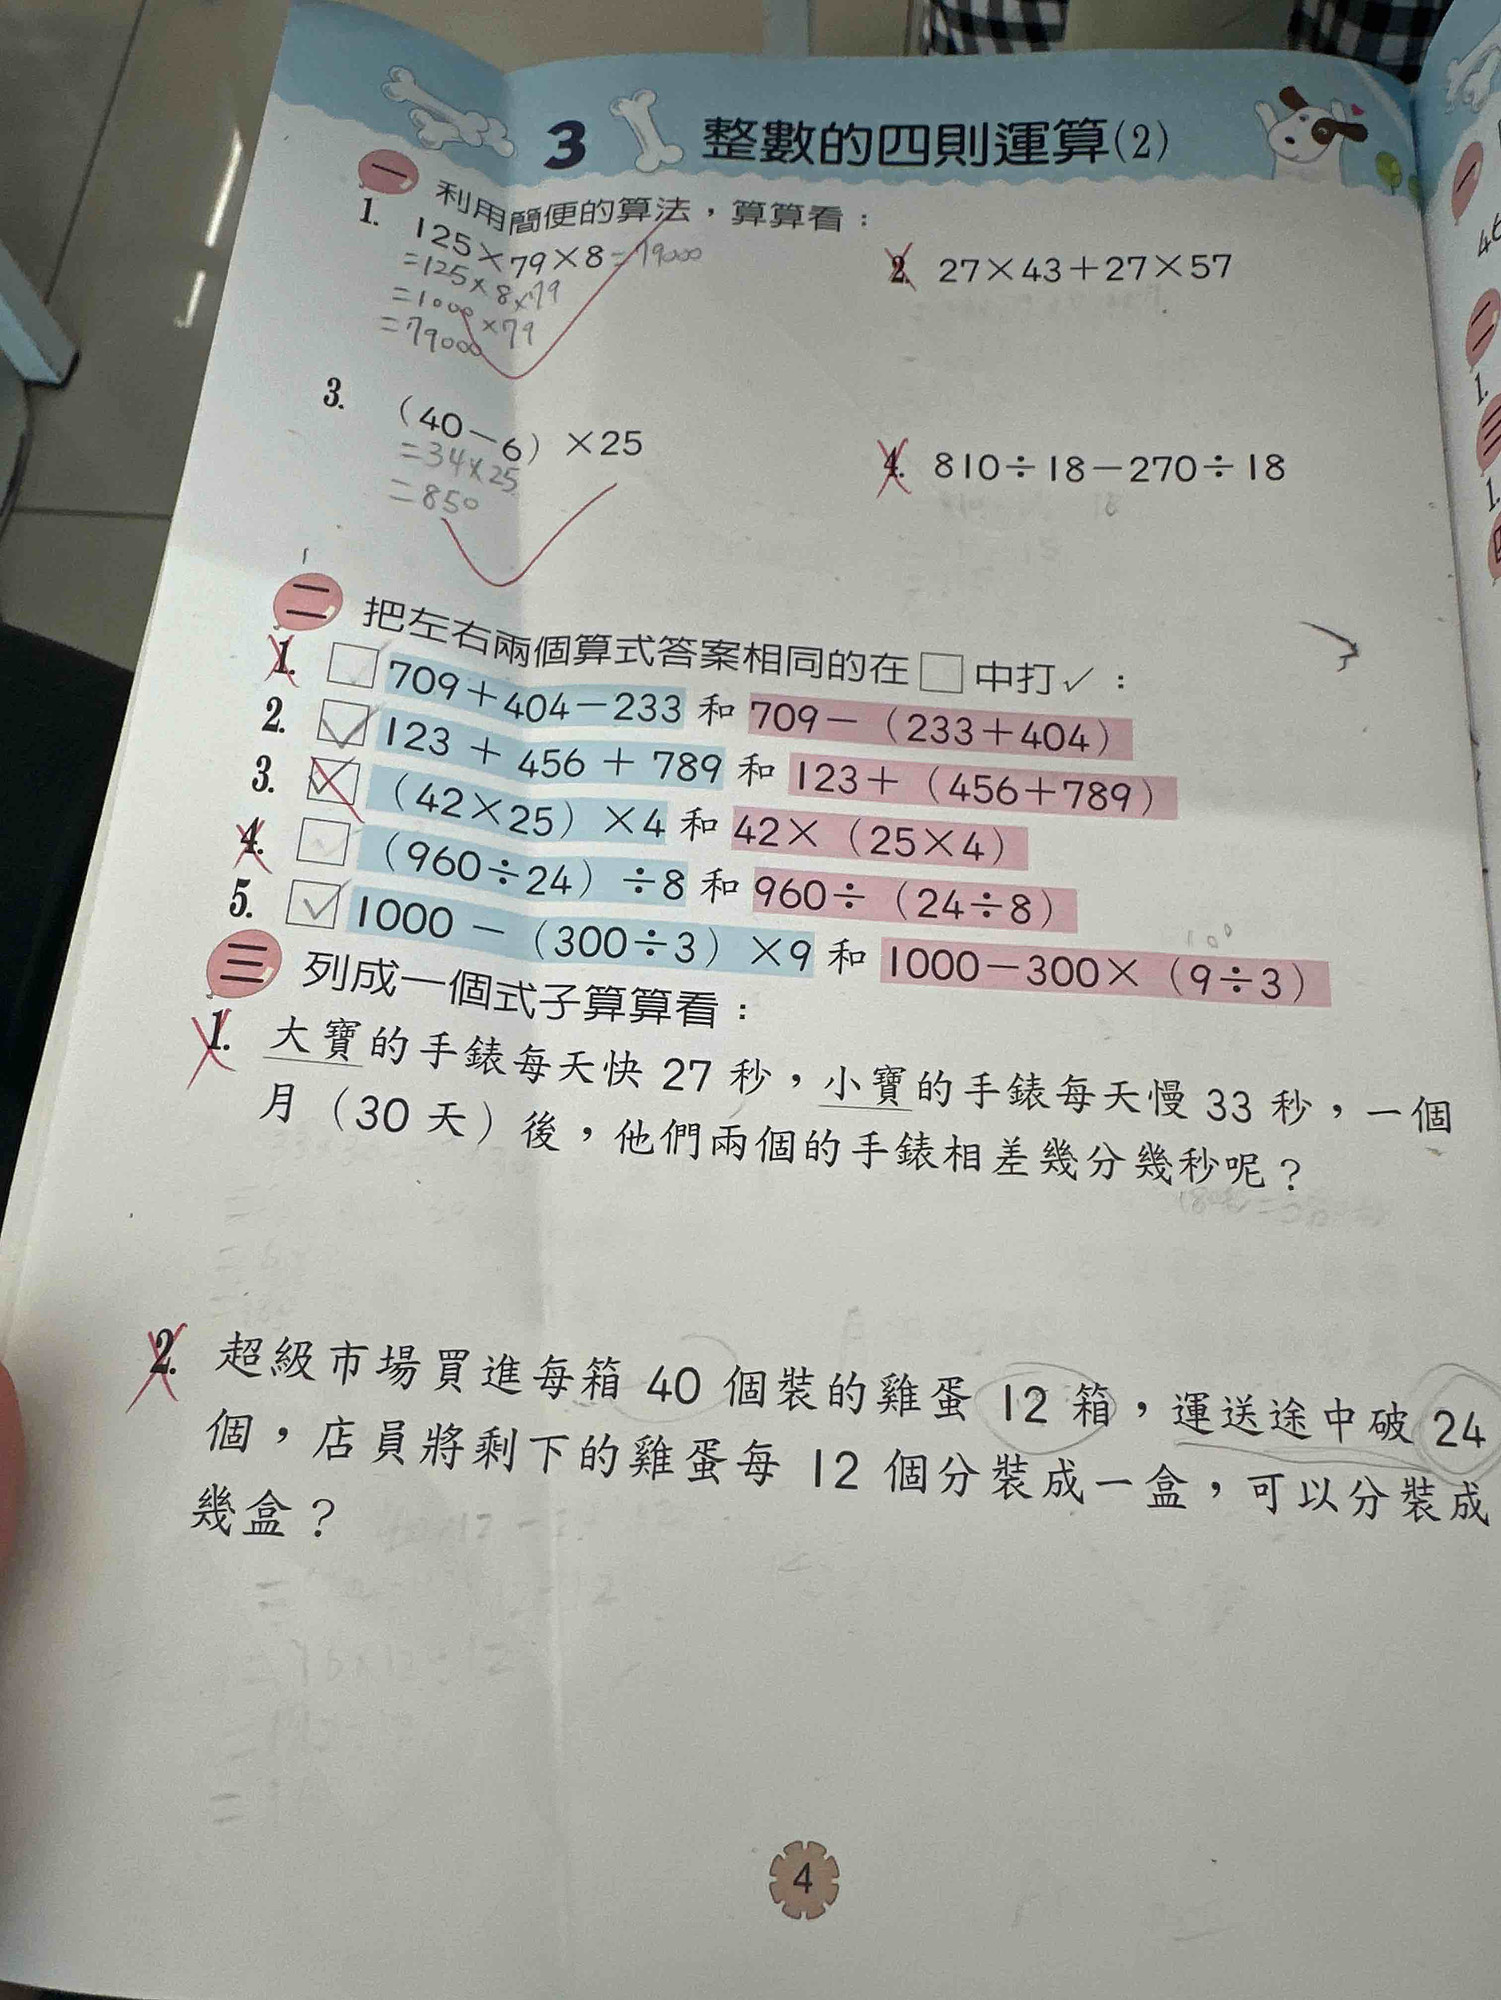 3 整數的四則運算(2)
一 利用簡便的算法，算算看：
1. 125×79×8=79000
=125×8×79
=1000×79
=79000
2. 27×43＋27×57
3. （40－6）×25
=34×25
=850
4. 810÷18－270÷18
二 把左右兩個算式答案相同的在□中打✓：
1. □ 709＋404－233 和 709－（233＋404）
2. ☑ 123＋456＋789 和 123＋（456＋789）
3. ☑ （42×25）×4 和 42×（25×4）
4. □ （960÷24）÷8 和 960÷（24÷8）
5. ☑ 1000－（300÷3）×9 和 1000－300×（9÷3）
100
三 列成一個式子算算看：
1. 大寶的手錶每天快 27 秒，小寶的手錶每天慢 33 秒，一個
月（30 天）後，他們兩個的手錶相差幾分幾秒呢？
2. 超級市場買進每箱 40 個裝的雞蛋 12 箱，運送途中破 24
個，店員將剩下的雞蛋每 12 個分裝成一盒，可以分裝成
幾盒？
4